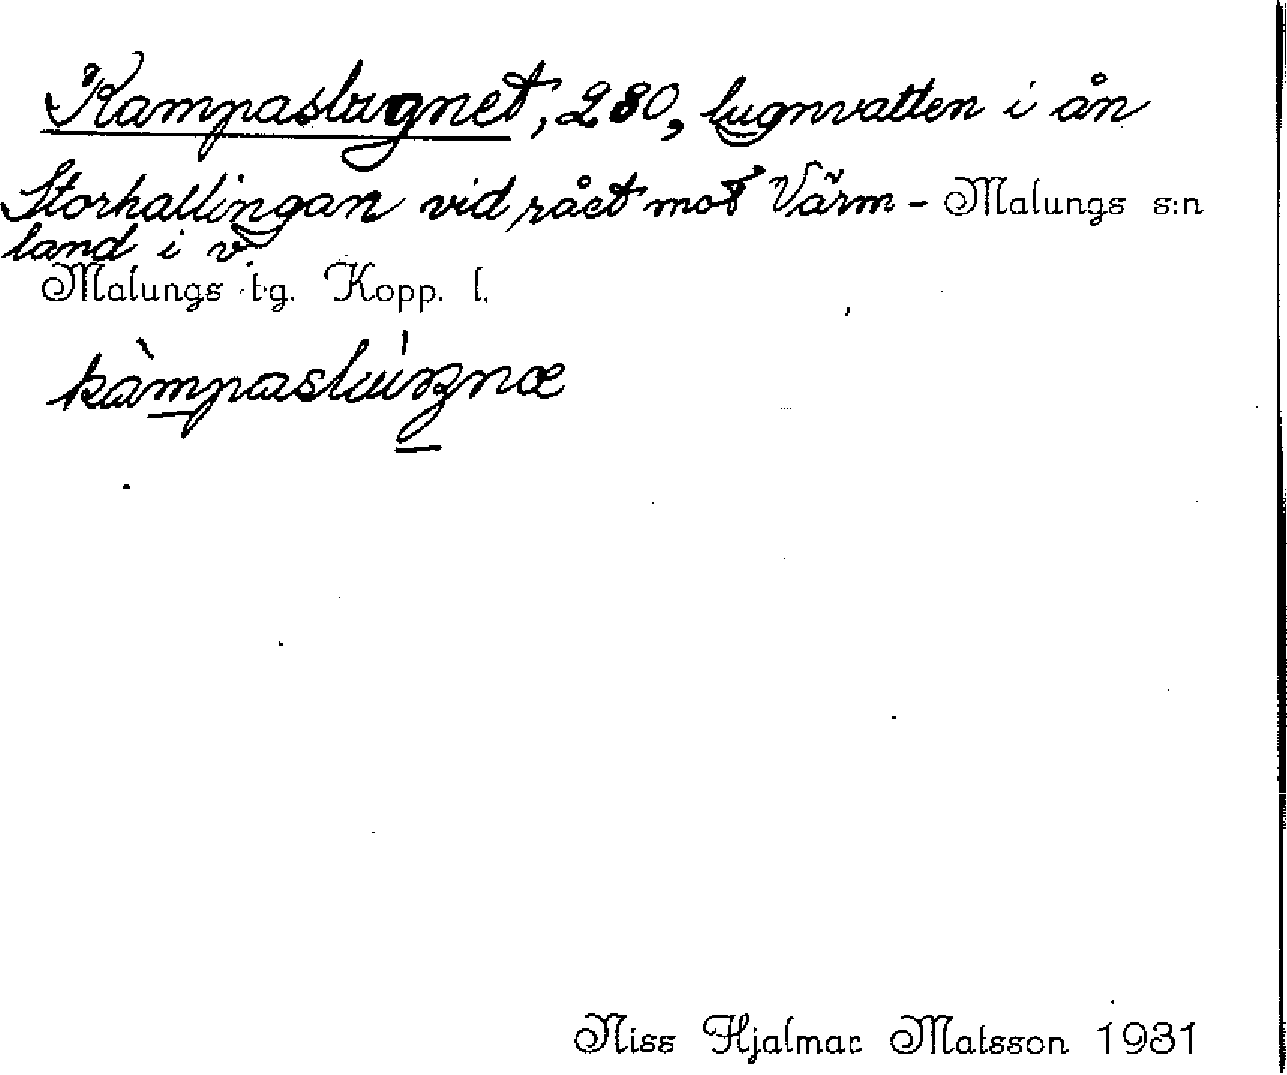 Kampaslugnet, 280, lugnvatten i ån
Storhallingan vid rået mot Värm- Malungs s:n
land i v.
Malungs t:g. Kopp. l.
kàmpaslúgnæ
Niss Hjalmar Matsson 1931